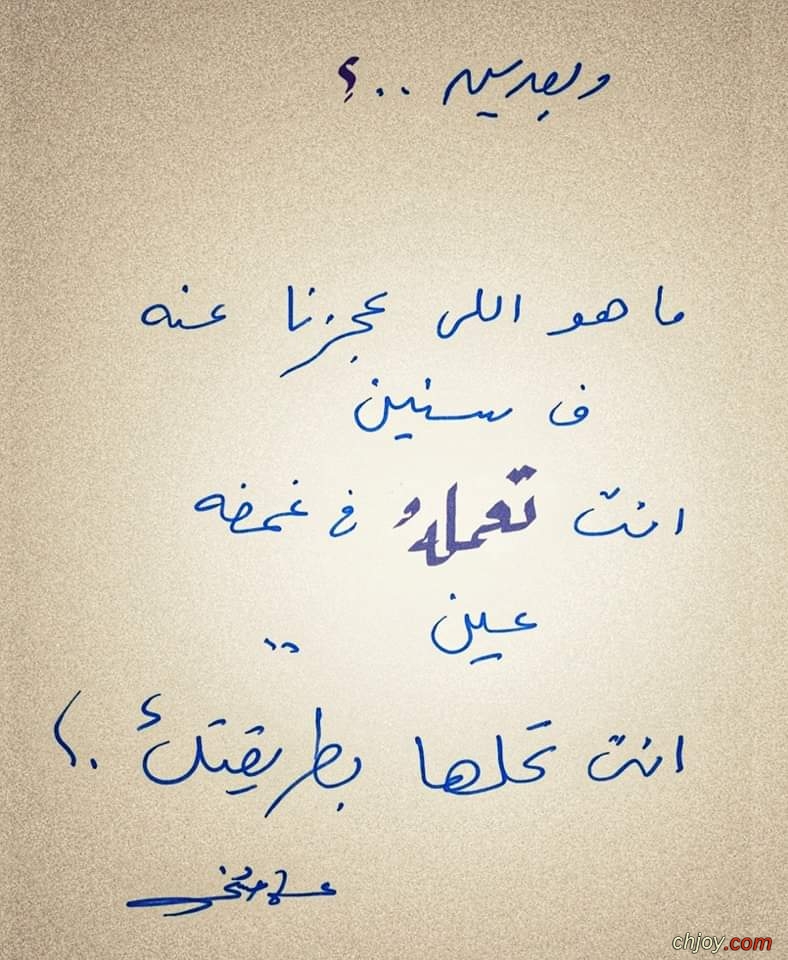 وبعدين ..؟
ما هو اللى عجزنا عنه
ف سنين
انت تعمله ف غمضه
عين ..
انت تحلها بطريقتك .)
chjoy.com